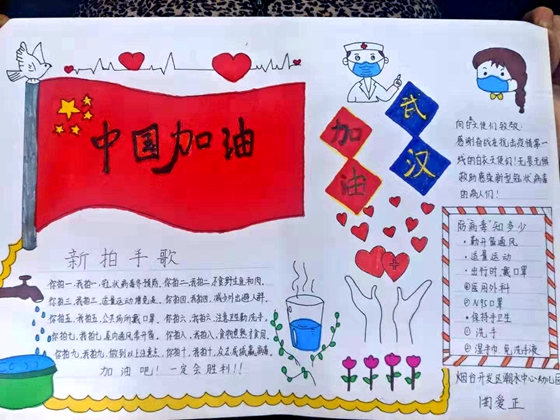 中国加油
武汉
加油
向白衣天使们致敬:
感谢奋战在抗击疫情第一
线的白衣天使们!
救助感染新型冠状病毒
的病人们!
防病毒知多少
·勤开窗通风
·适量运动
·出行时戴口罩
医用外科
N95口罩
·保持手卫生
①洗手
②湿手巾、免洗手液
新拍手歌
你拍一,我拍一,冠状病毒要预防,你拍二,我拍二,不食野生鱼和肉,
你拍三,我拍三,适量运动,你拍四,我拍四,减少外出避人群,
你拍五,我拍五,公共场所戴口罩,你拍六,我拍六,注意卫生勤洗手,
你拍七,我拍七,室内通风常开窗,你拍八,我拍八,食物煮熟才食用,
你拍九,我拍九,做到以上注意点,你拍十,我拍十,众志成城赢病毒,
加油吧!一定会胜利!!
烟台开发区潮水中心幼儿园
周爱正